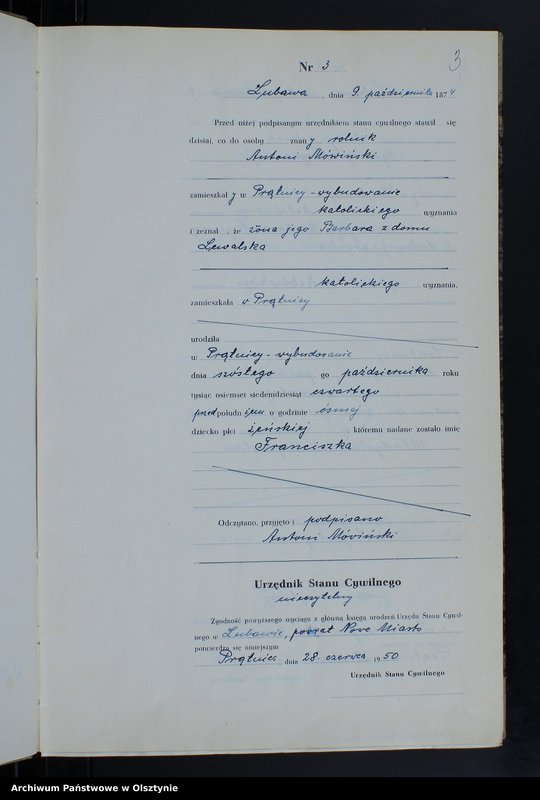 3
Nr 3
Lubawa, dnia 9 października 1874
Przed niżej podpisanym urzędnikiem stanu cywilnego stawił się
dzisiaj, co do osoby znany rolnik
Antoni Mówiński
zamieszkały w Prątnicy-wybudowanie
katolickiego wyznania
i zeznał, że żona jego Barbara z domu
Lewalska
katolickiego wyznania,
zamieszkała w Prątnicy
urodziła
w Prątnicy-wybudowanie
dnia szóstego go października roku
tysiąc osiemset siedemdziesiąt czwartego
przed południem o godzinie ósmej
dziecko płci żeńskiej któremu nadane zostało imię
Franciszka
Odczytano, przyjęto i podpisano
Antoni Mówiński
Urzędnik Stanu Cywilnego
nieczytelny
Zgodność powyższego wyciągu z główną księgą urodzeń Urzędu Stanu Cywil-
nego w Lubawie, powiat Nowe Miasto
potwierdza się niniejszym
Prątnica, dnia 28 czerwca 1950
Urzędnik Stanu Cywilnego
Archiwum Państwowe w Olsztynie